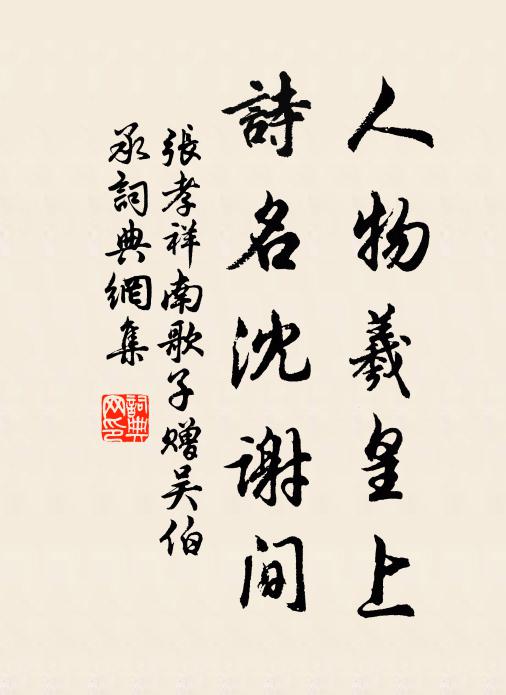 人物羲皇上
詩名沈謝间
張孝祥南歌子赠吴伯
承詞典網集
詞典网印